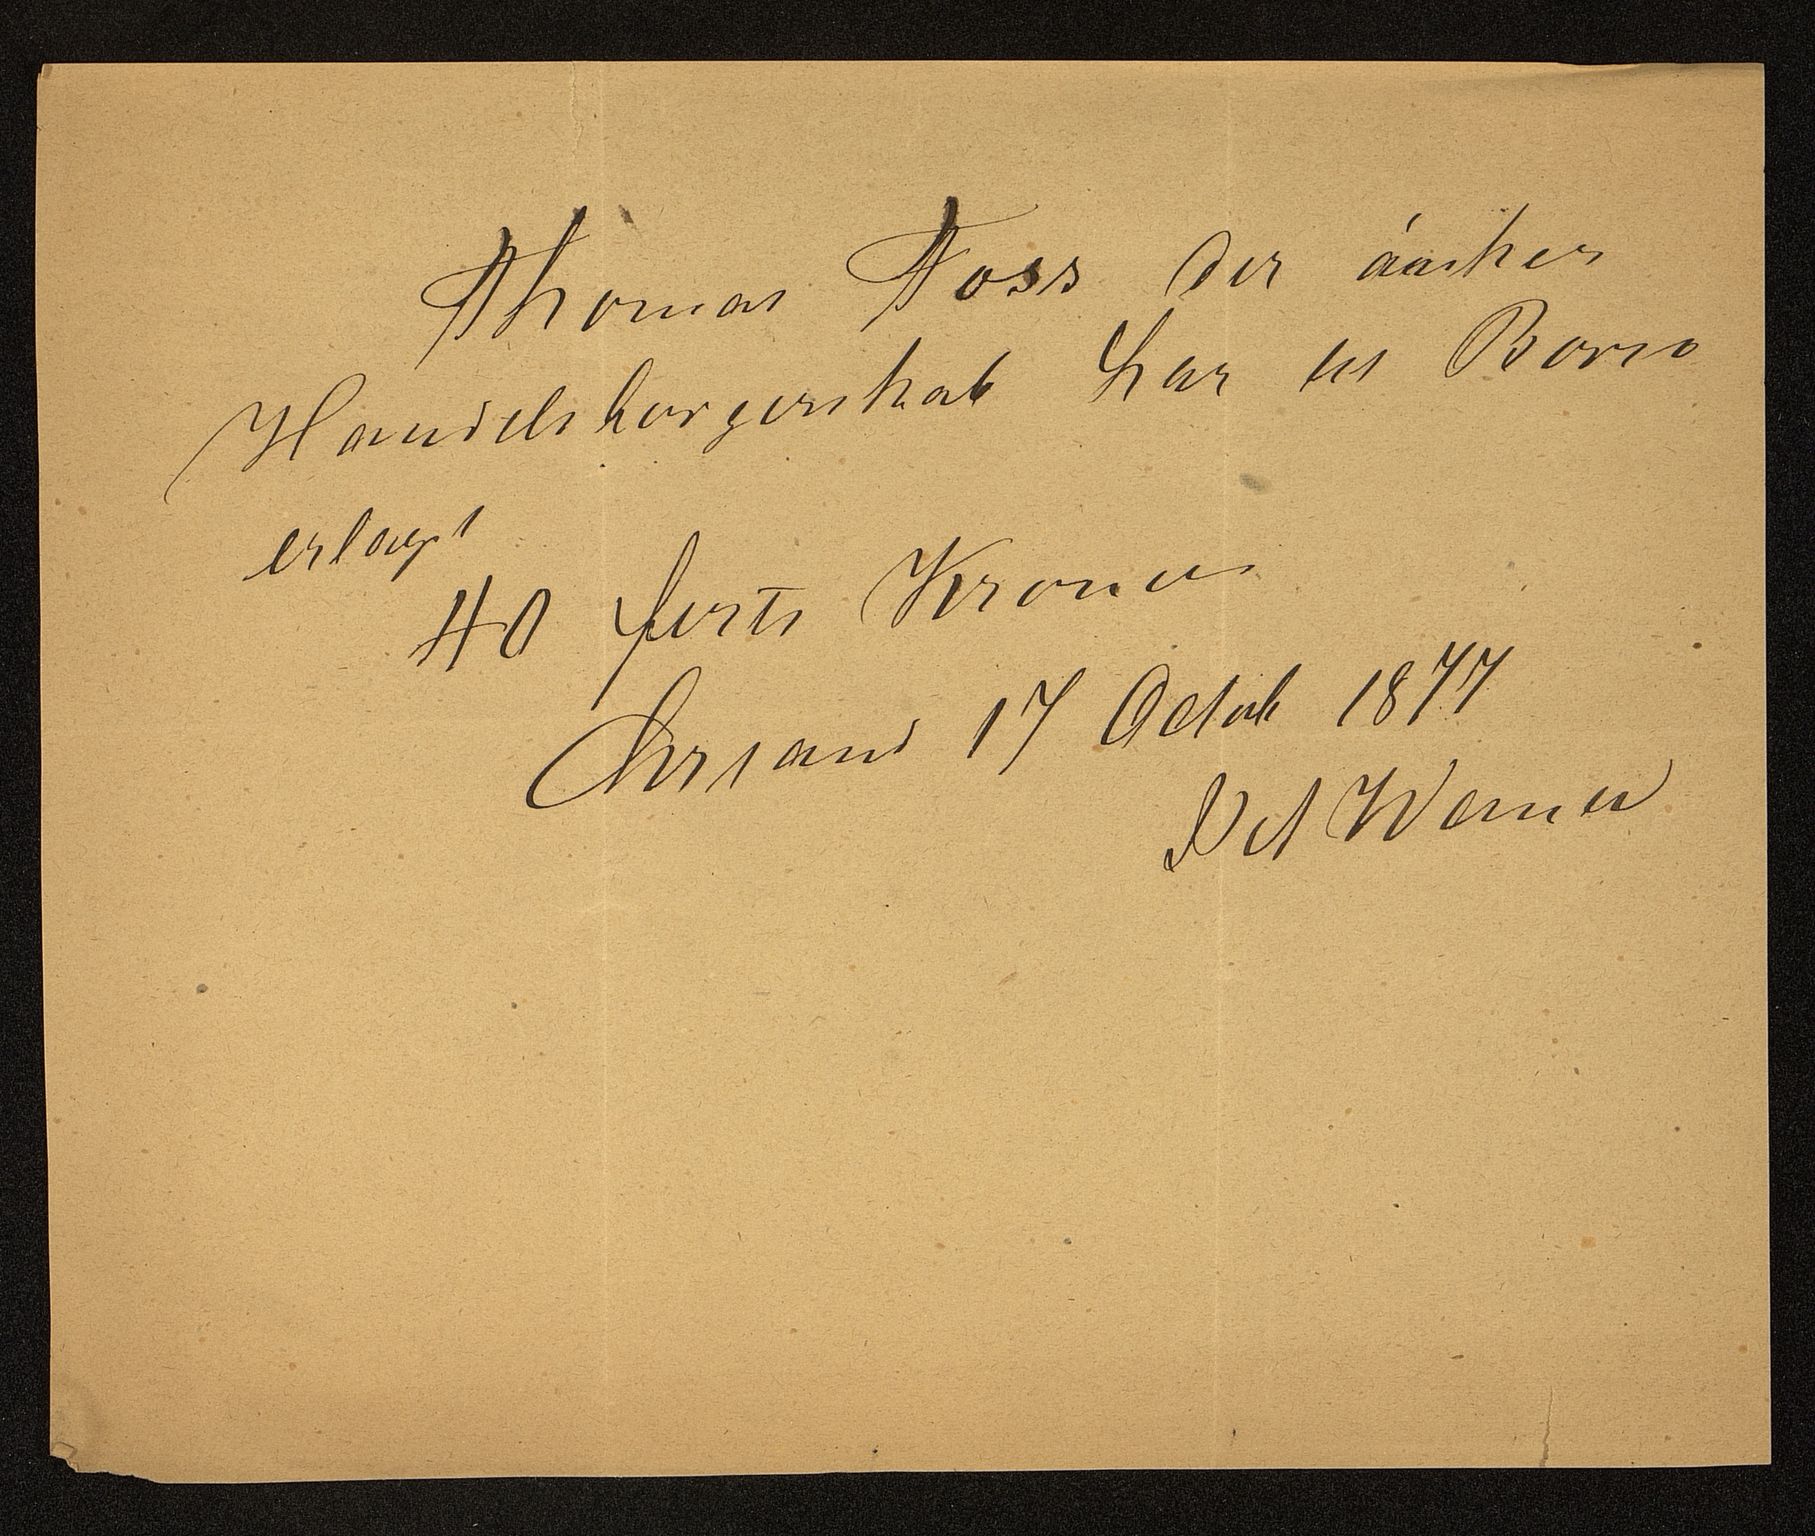 Thomas Foss der önsker
Handelsborgerskab har til Borso
erlagt
40 førti Kroner
Chrsand 17 Octob 1877
Werner